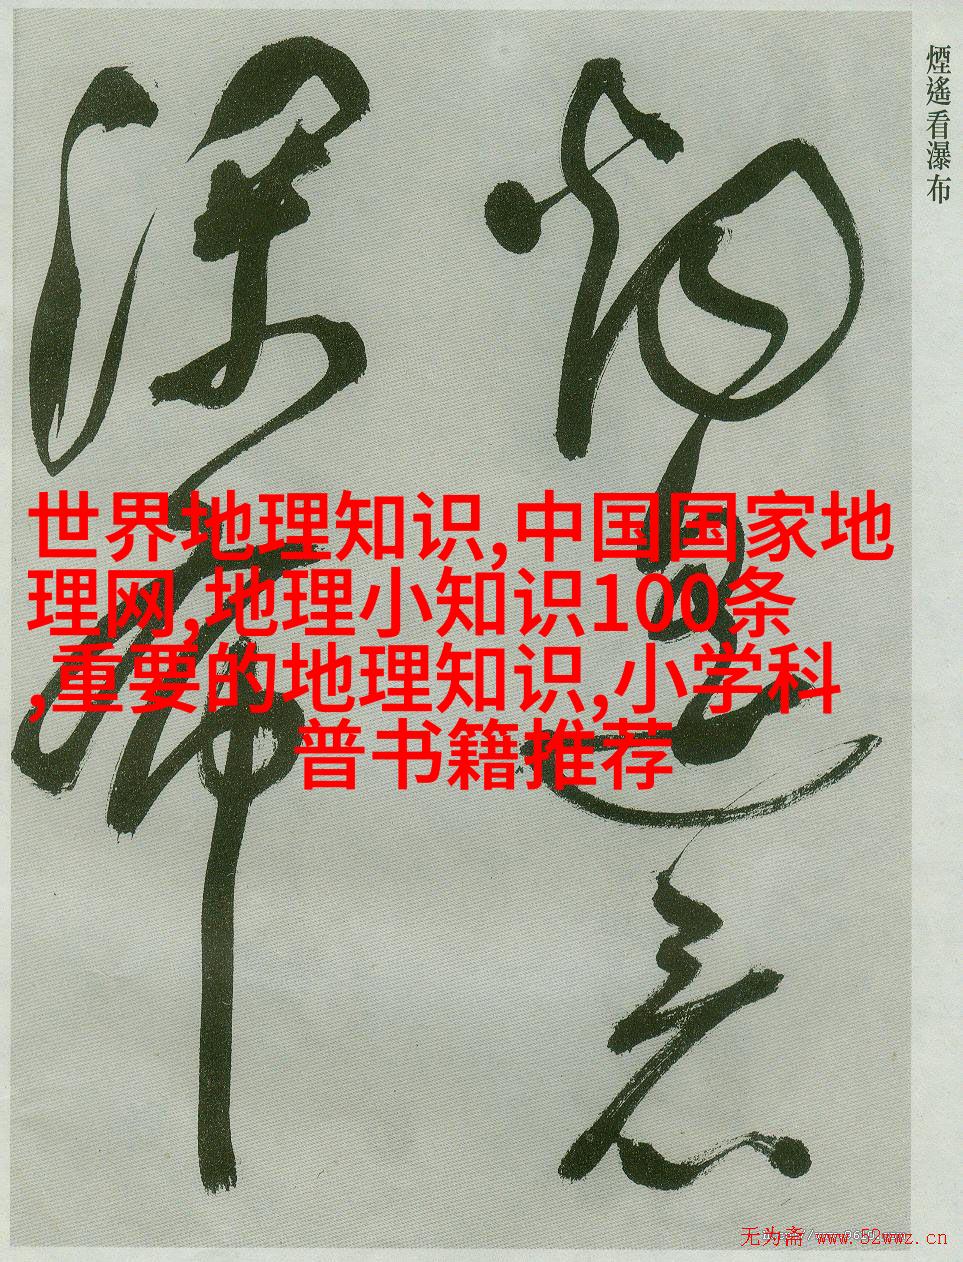 煙遙看瀑布
世界地理知识,中国国家地
理网,地理小知识100条
,重要的地理知识,小学科
普书籍推荐
无为斋 www.52wwz.cn